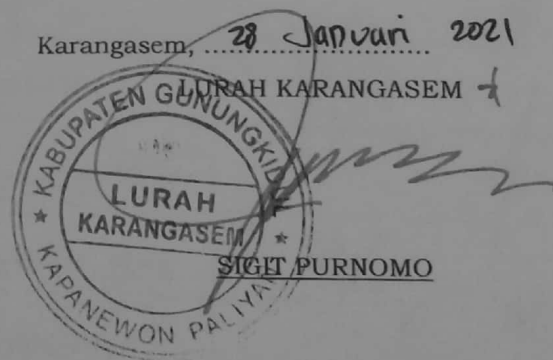 Karangasem, 28 Januari 2021
LURAH KARANGASEM
KABUPATEN GUNUNGKIDUL
LURAH
KARANGASEM
KAPANEWON PALIYAN
SIGIT PURNOMO